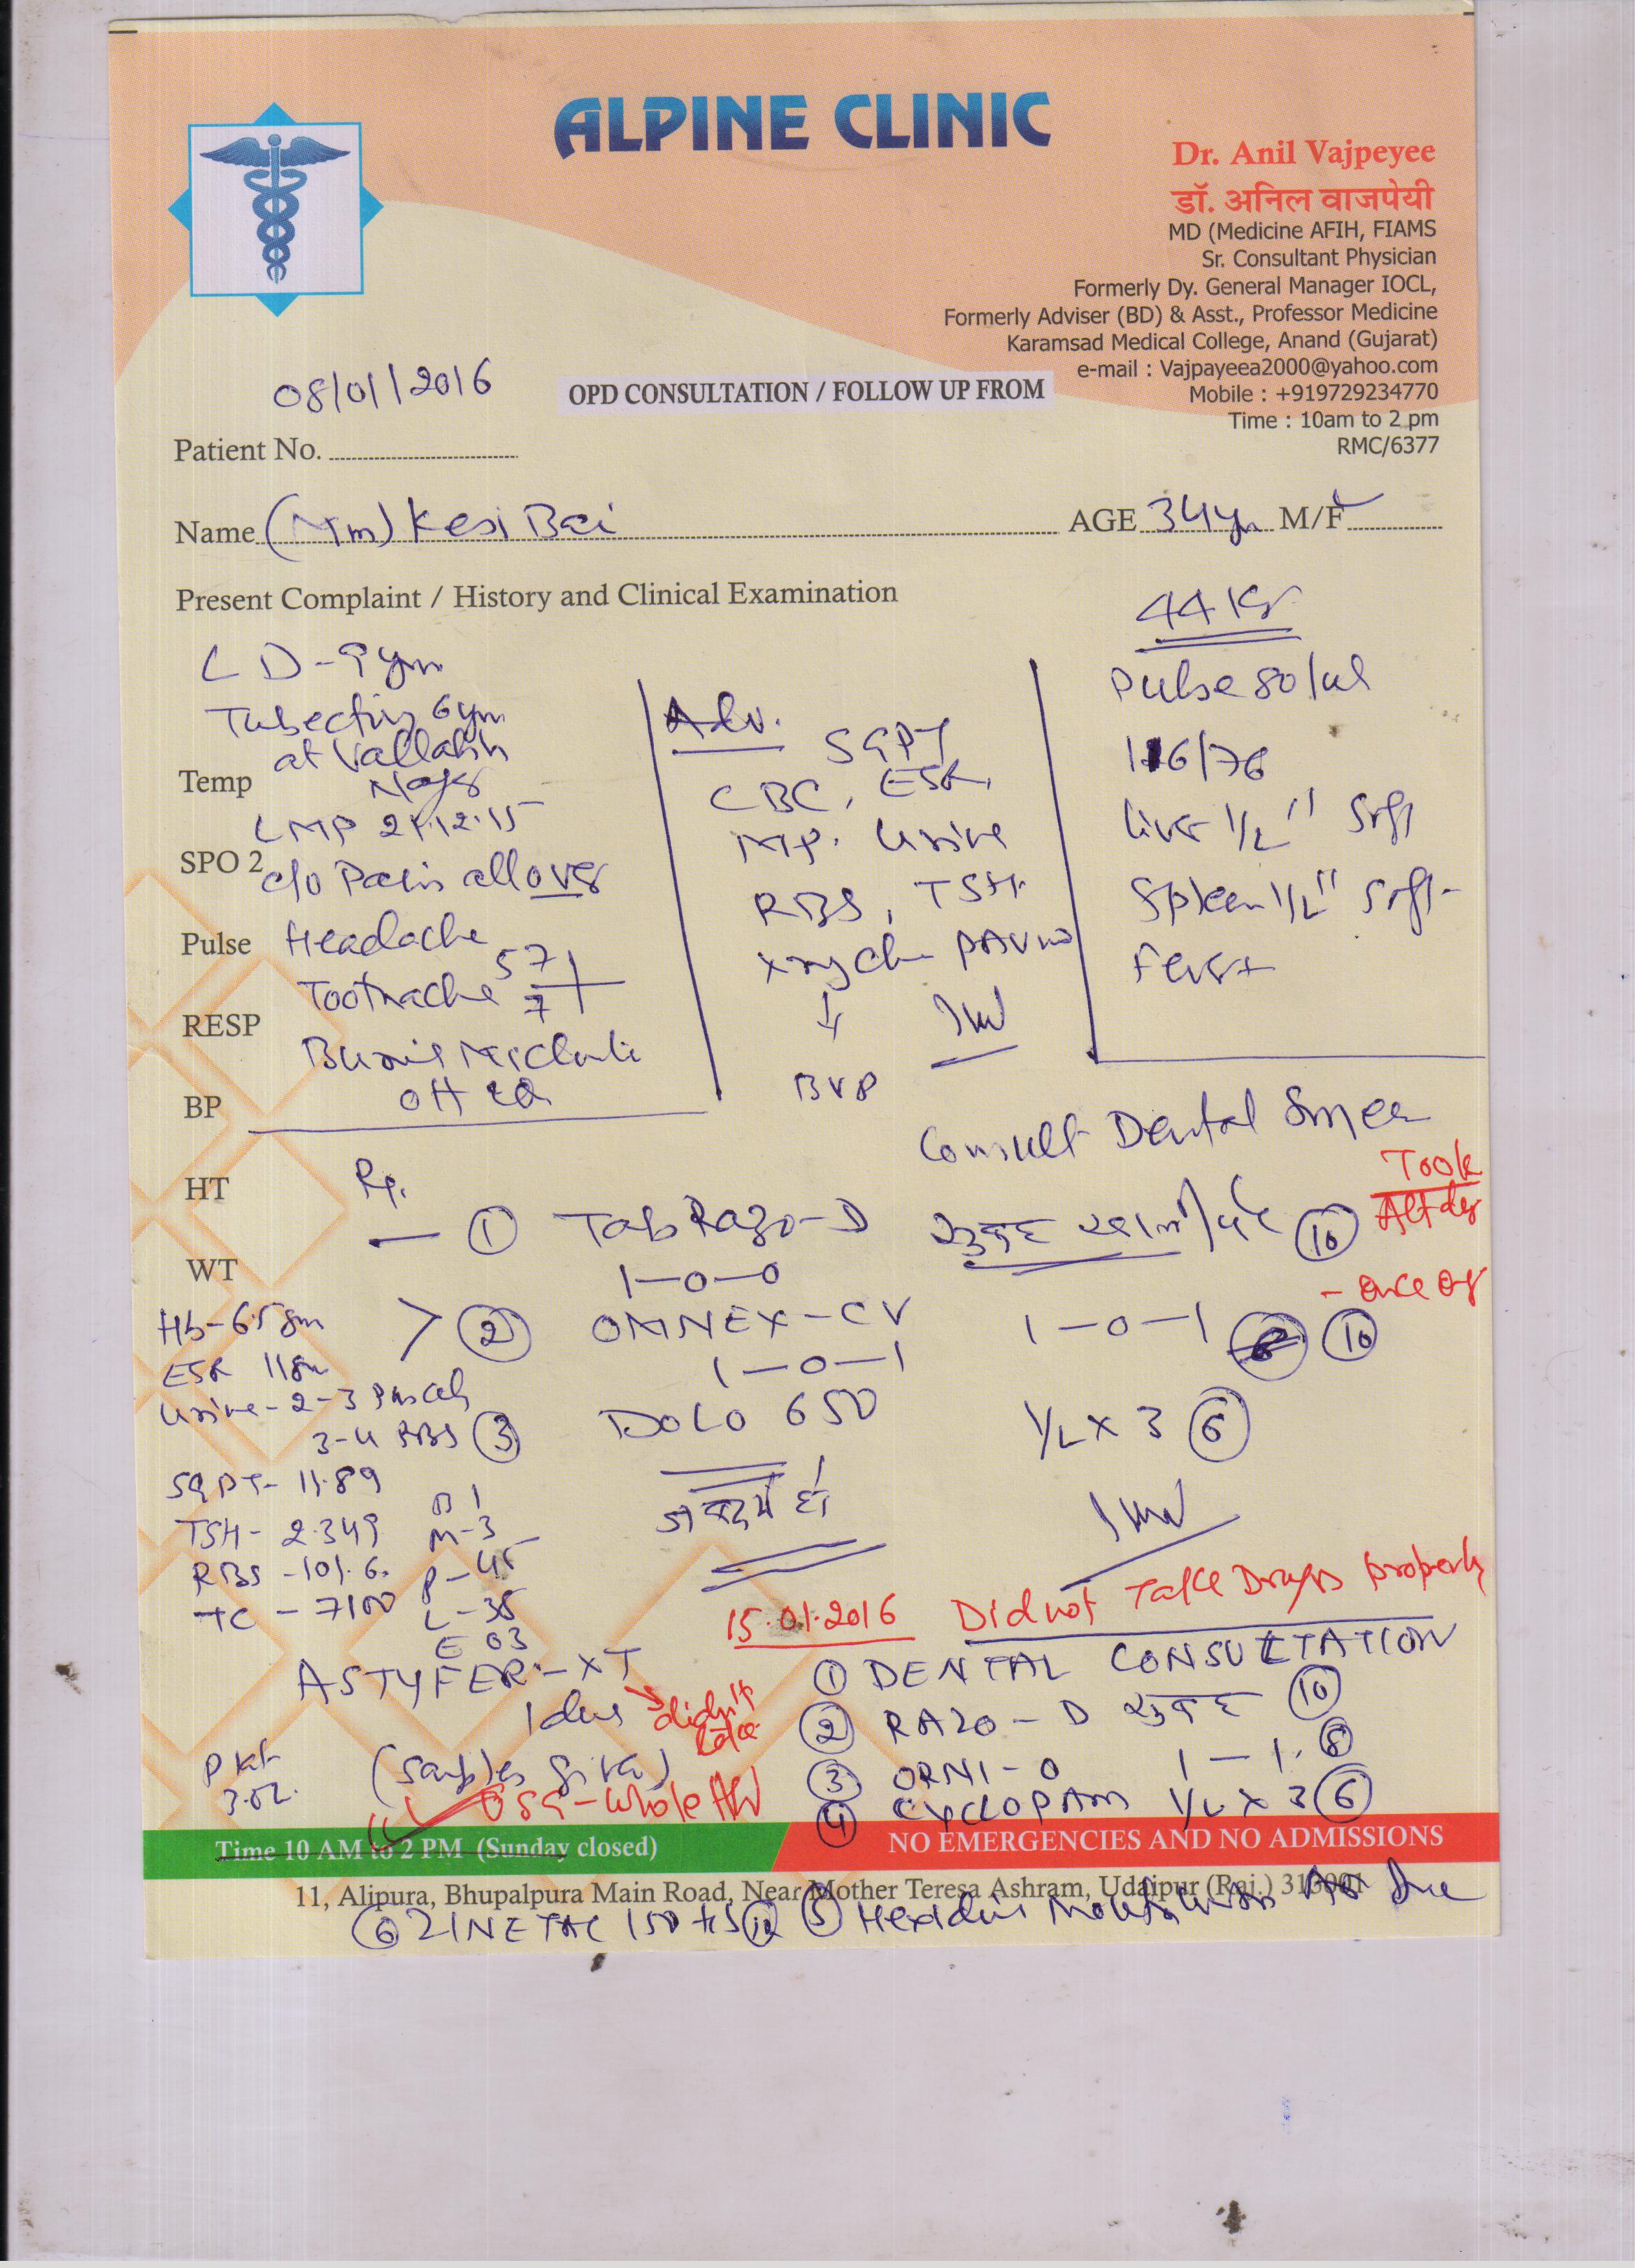 ALPINE CLINIC
Dr. Anil Vajpeyee
डॉ. अनिल वाजपेयी
MD (Medicine AFIH, FIAMS
Sr. Consultant Physician
Formerly Dy. General Manager IOCL,
Formerly Adviser (BD) & Asst., Professor Medicine
Karamsad Medical College, Anand (Gujarat)
e-mail : Vajpayeea2000@yahoo.com
Mobile : +919729234770
Time : 10am to 2 pm
RMC/6377
08/01/2016
OPD CONSULTATION / FOLLOW UP FROM
Patient No.
Name Kesi Bai AGE 34 M/F
Present Complaint / History and Clinical Examination
44 Kg
LD-9
6
at
Temp
LMP 21.12.15
SPO 2
c/o Pain all over
Pulse
Headache
Toothache 57
7
RESP
BP
Adv.
SGPT
CBC, ESR,
MP. Urine
RBS, TSH
1W
BVP
Pulse 80/
116/76
liver 1/2" soft
Spleen 1/2" soft
Fever+
Consult Dental
HT
Rp.
① Tab Razo-D सुबह 10
Took
Alt day
1-0-0
WT
② OMNEX-CV 1-0-1 10
- once
1-0-1
③ DOLO 650 1/2 x 3 6
1W
Hb-6.5 gm
ESR 118
Urine-2-3 Pus cells
3-4 RBS
SGPT- 11.89
TSH- 2.349
RBS -101.6.
TC - 7100
B 1
M-3
P-
L-35
E 03
15.01.2016 Did not Take Drugs properly
ASTYFER-XT
didn't take
(Samples given)
USG-Whole
Plat
3.02
① DENTAL CONSULTATION
② RAZO-D सुबह 10
③ ORNI-O 1-1. 8
④ CYCLOPAM 1/2 x 3 6
Time 10 AM to 2 PM (Sunday closed)
NO EMERGENCIES AND NO ADMISSIONS
11, Alipura, Bhupalpura Main Road, Near Mother Teresa Ashram, Udaipur (Raj.) 313001
⑤ Hexidine Mouth Wash
⑥ ZINETAC 150 HS 10